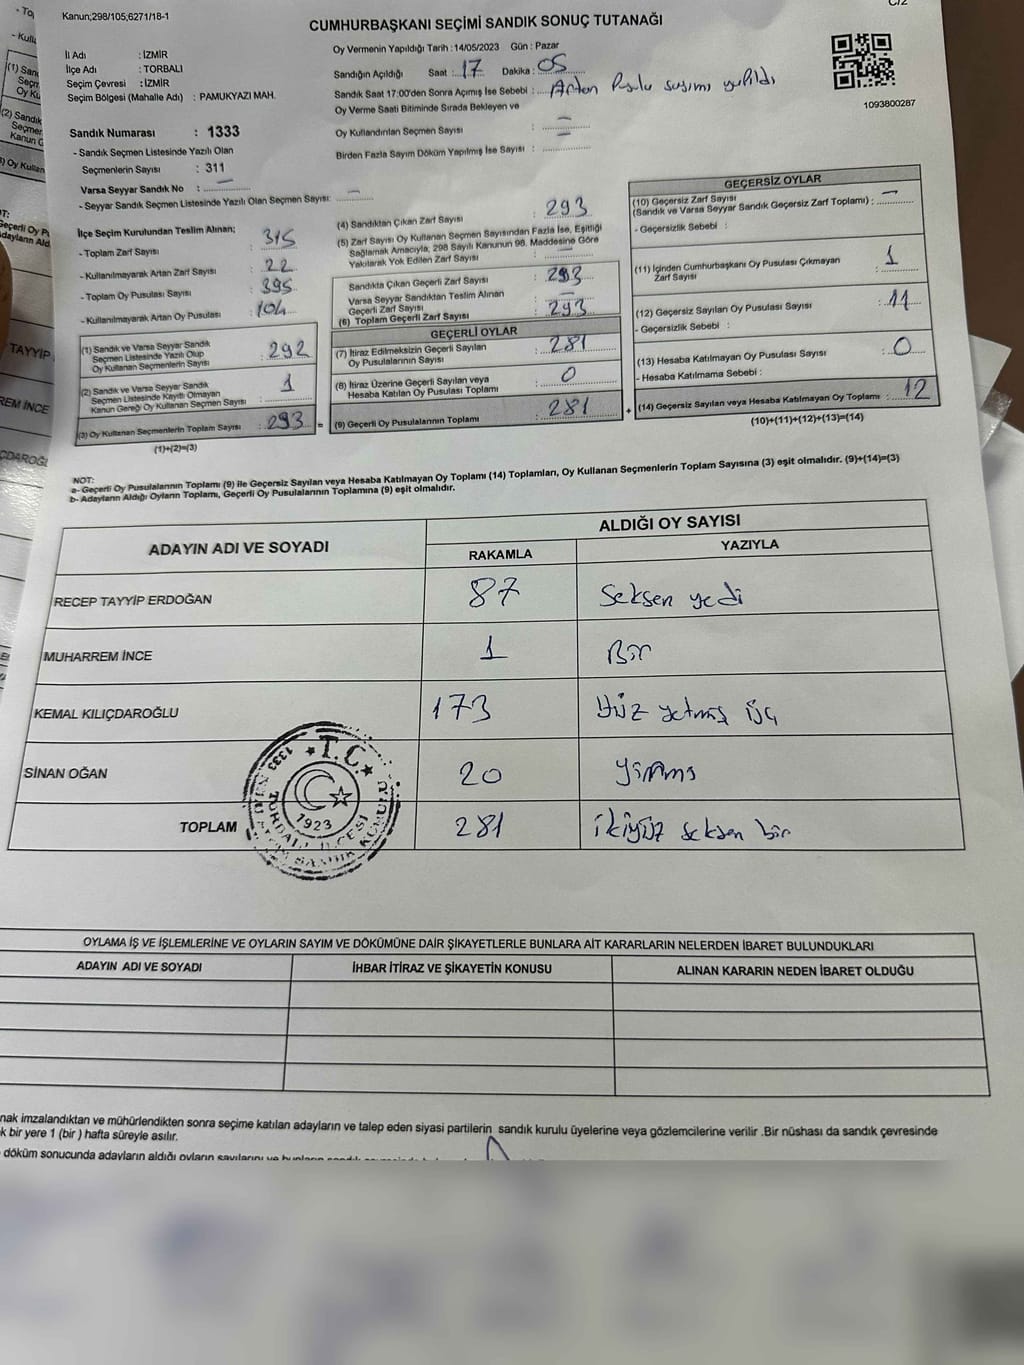 C/2
Kanun;298/105;6271/18-1
CUMHURBAŞKANI SEÇİMİ SANDIK SONUÇ TUTANAĞI
İl Adı : İZMİR
İlçe Adı : TORBALI
Seçim Çevresi : İZMİR
Seçim Bölgesi (Mahalle Adı) : PAMUKYAZI MAH.
Oy Vermenin Yapıldığı Tarih : 14/05/2023 Gün : Pazar
Sandığın Açıldığı Saat : 17 Dakika : 05
Sandık Saat 17:00'den Sonra Açımış İse Sebebi : Artan Pusula sayımı yapıldı
Oy Verme Saati Bitiminde Sırada Bekleyen ve
Oy Kullandırılan Seçmen Sayısı : —
Birden Fazla Sayım Döküm Yapılmış İse Sayısı : —
1093800287
Sandık Numarası : 1333
- Sandık Seçmen Listesinde Yazılı Olan
Seçmenlerin Sayısı : 311
Varsa Seyyar Sandık No : —
- Seyyar Sandık Seçmen Listesinde Yazılı Olan Seçmen Sayısı: —
İlçe Seçim Kurulundan Teslim Alınan;
- Toplam Zarf Sayısı : 315
- Kullanılmayarak Artan Zarf Sayısı : 22
- Toplam Oy Pusulası Sayısı : 395
- Kullanılmayarak Artan Oy Pusulası : 104
(1) Sandık ve Varsa Seyyar Sandık
Seçmen Listesinde Yazılı Olup
Oy Kullanan Seçmenlerin Sayısı : 292
(2) Sandık ve Varsa Seyyar Sandık
Seçmen Listesinde Kayıtlı Olmayan
Kanun Gereği Oy Kullanan Seçmen Sayısı : 1
(3) Oy Kullanan Seçmenlerin Toplam Sayısı : 293
(1)+(2)=(3)
(4) Sandıktan Çıkan Zarf Sayısı : 293
(5) Zarf Sayısı Oy Kullanan Seçmen Sayısından Fazla İse, Eşitliği
Sağlamak Amacıyla; 298 Sayılı Kanunun 98. Maddesine Göre
Yakılarak Yok Edilen Zarf Sayısı : —
Sandıkta Çıkan Geçerli Zarf Sayısı : 293
Varsa Seyyar Sandıktan Teslim Alınan
Geçerli Zarf Sayısı : —
(6) Toplam Geçerli Zarf Sayısı : 293
GEÇERLİ OYLAR
(7) İtiraz Edilmeksizin Geçerli Sayılan
Oy Pusulalarının Sayısı : 281
(8) İtiraz Üzerine Geçerli Sayılan veya
Hesaba Katılan Oy Pusulası Toplamı : 0
(9) Geçerli Oy Pusulalarının Toplamı : 281
GEÇERSİZ OYLAR
(10) Geçersiz Zarf Sayısı
(Sandık ve Varsa Seyyar Sandık Geçersiz Zarf Toplamı) : —
- Geçersizlik Sebebi :
(11) İçinden Cumhurbaşkanı Oy Pusulası Çıkmayan
Zarf Sayısı : 1
(12) Geçersiz Sayılan Oy Pusulası Sayısı : 11
- Geçersizlik Sebebi :
(13) Hesaba Katılmayan Oy Pusulası Sayısı : 0
- Hesaba Katılmama Sebebi :
(14) Geçersiz Sayılan veya Hesaba Katılmayan Oy Toplamı : 12
(10)+(11)+(12)+(13)=(14)
NOT:
a- Geçerli Oy Pusulalarının Toplamı (9) ile Geçersiz Sayılan veya Hesaba Katılmayan Oy Toplamı (14) Toplamları, Oy Kullanan Seçmenlerin Toplam Sayısına (3) eşit olmalıdır. (9)+(14)=(3)
b- Adayların Aldığı Oyların Toplamı, Geçerli Oy Pusulalarının Toplamına (9) eşit olmalıdır.
ADAYIN ADI VE SOYADI
ALDIĞI OY SAYISI
RAKAMLA YAZIYLA
RECEP TAYYİP ERDOĞAN 87 Seksen yedi
MUHARREM İNCE 1 Bir
KEMAL KILIÇDAROĞLU 173 Yüz yetmiş üç
SİNAN OĞAN 20 Yirmi
TOPLAM 281 ikiyüz seksen bir
T.C.
1333
1923
TORBALI İLÇESİ
SANDIK KURULU
OYLAMA İŞ VE İŞLEMLERİNE VE OYLARIN SAYIM VE DÖKÜMÜNE DAİR ŞİKAYETLERLE BUNLARA AİT KARARLARIN NELERDEN İBARET BULUNDUKLARI
ADAYIN ADI VE SOYADI İHBAR İTİRAZ VE ŞİKAYETİN KONUSU ALINAN KARARIN NEDEN İBARET OLDUĞU
nak imzalandıktan ve mühürlendikten sonra seçime katılan adayların ve talep eden siyasi partilerin sandık kurulu üyelerine veya gözlemcilerine verilir .Bir nüshası da sandık çevresinde
k bir yere 1 (bir ) hafta süreyle asılır.
döküm sonucunda adayların aldığı oyların sayılarını ve bunların